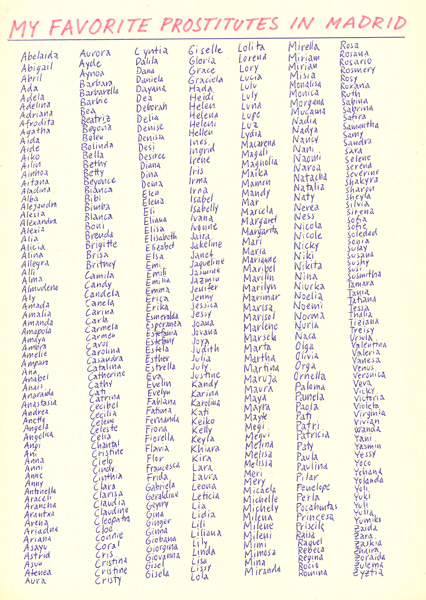 MY FAVORITE PROSTITUTES IN MADRID
Abelaida
Abigail
Abril
Ada
Adela
Adelina
Adriana
Afrodita
Agatha
Aida
Aide
Aiko
Ailin
Ainhoa
Aitana
Aladina
Alba
Alejandra
Alesia
Alexandra
Alexia
Alia
Alicia
Alina
Allegra
Alli
Alma
Almudena
Aly
Amada
Amalia
Amanda
Amapola
Amaya
Ambra
Amelie
Amparo
Ana
Anabel
Anais
Anaraida
Anastasia
Andrea
Anette
Angela
Angelina
Angi
Ani
Anna
Anni
Anne
Anny
Antonella
Araceli
Arancha
Arantxa
Arena
Ariadna
Ariane
Asayu
Astrid
Asun
Atenea
Aura
Aurora
Ayde
Aynoa
Barbara
Barbarella
Barbie
Bea
Beatriz
Begoña
Belen
Belinda
Bella
Bethy
Betty
Beyonce
Bianca
Bibi
Bimba
Blanca
Boni
Brenda
Brigitte
Brisa
Britney
Camila
Candy
Candela
Canela
Carina
Carla
Carmela
Carmen
Carol
Carolina
Casandra
Catalina
Catherine
Cathy
Cati
Catrina
Cecibel
Cecilia
Celene
Celeste
Celia
Chantal
Cristine
Cielo
Cindy
Cinthia
Clara
Clarisa
Claudia
Claudine
Cleopatra
Cloe
Connie
Coral
Cris
Cristina
Cristine
Cristy
Cyntia
Dalila
Dana
Daniela
Dayana
Dea
Deborah
Delia
Denise
Denisse
Desi
Desiree
Diana
Dina
Dona
Elena
Eli
Eliana
Elisa
Elisabeth
Elizabet
Elsa
Emi
Emili
Emilia
Emma
Erica
Erika
Esmeralda
Esperanza
Estefania
Estefany
Estela
Esther
Estrella
Eva
Evelin
Evelyn
Fabiana
Fatima
Fernanda
Fiona
Fiorella
Flavia
Flor
Francesca
Frida
Gabriela
Geraldine
Geyery
Gia
Ginger
Ginna
Giobanna
Giorgina
Giovanna
Gisel
Gisela
Giselle
Gloria
Grace
Graciela
Hada
Heidi
Helen
Helena
Heleni
Hellen
Ines
Ingrid
Irene
Iris
Irma
Irna
Isabel
Isabelly
Ivana
Ivonne
Jaira
Jakeline
Janet
Jaqueline
Jasmine
Jazmin
Jenifer
Jenny
Jesica
Jessy
Joana
Jovana
Joya
Judith
Julia
July
Justine
Kandy
Karina
Karolina
Kati
Keiko
Kelly
Keyla
Khiara
Kira
Lara
Laura
Leona
Leticia
Lia
Lidia
Lili
Liliana
Lily
Linda
Lisa
Lissy
Lola
Lolita
Lorena
Lory
Lucia
Lulu
Luly
Luna
Lupe
Luz
Lydia
Macarena
Magali
Magnolia
Maika
Mamen
Mandy
Mar
Mariela
Margaret
Margarita
Mari
Maria
Marianne
Maribel
Marilin
Marilyn
Marimar
Marisa
Marisol
Marlene
Marsela
Marta
Martha
Martina
Maruja
Maura
Maya
Mayra
Megi
Megui
Melina
Melisa
Melissa
Meri
Mery
Micaela
Michelle
Michely
Milena
Mileni
Mimi
Mimosa
Mina
Miranda
Mirella
Miriam
Mirian
Misia
Monalisa
Monica
Morgana
Mucama
Nadia
Nadya
Nancy
Nani
Naomi
Narea
Natacha
Natalia
Naty
Nerea
Ness
Nicol
Nicole
Nicky
Niki
Nikita
Nina
Niurka
Noelia
Noemi
Norma
Nuria
Olga
Olivia
Orga
Ornella
Paloma
Pamela
Paola
Pati
Patri
Patricia
Patty
Paula
Paulina
Pilar
Penelope
Perla
Pocahontas
Princesa
Priscila
Raisa
Raquel
Rebeca
Regina
Rocio
Romina
Rosa
Rosana
Rosario
Rosmery
Rosy
Roxana
Ruth
Sabina
Sabrina
Safira
Samantha
Samy
Sandra
Sara
Selene
Serena
Severine
Shakyra
Sharon
Sheyla
Silvia
Sirena
Sofia
Sofie
Soledad
Sonia
Sulay
Susana
Sushy
Susi
Susmitha
Tamara
Tania
Tatiana
Tessia
Thalia
Tiziana
Treisy
Ursula
Valentina
Valeria
Vanesa
Venus
Veronica
Veva
Vicky
Victoria
Violeta
Virginia
Vivian
Wanda
Yani
Yasmin
Yessy
Yoco
Yohana
Yolanda
Yoli
Yuki
Yuli
Yulia
Yumiko
Zaida
Zara
Zaskia
Zhaira
Zoraida
Zulema
Zyztia